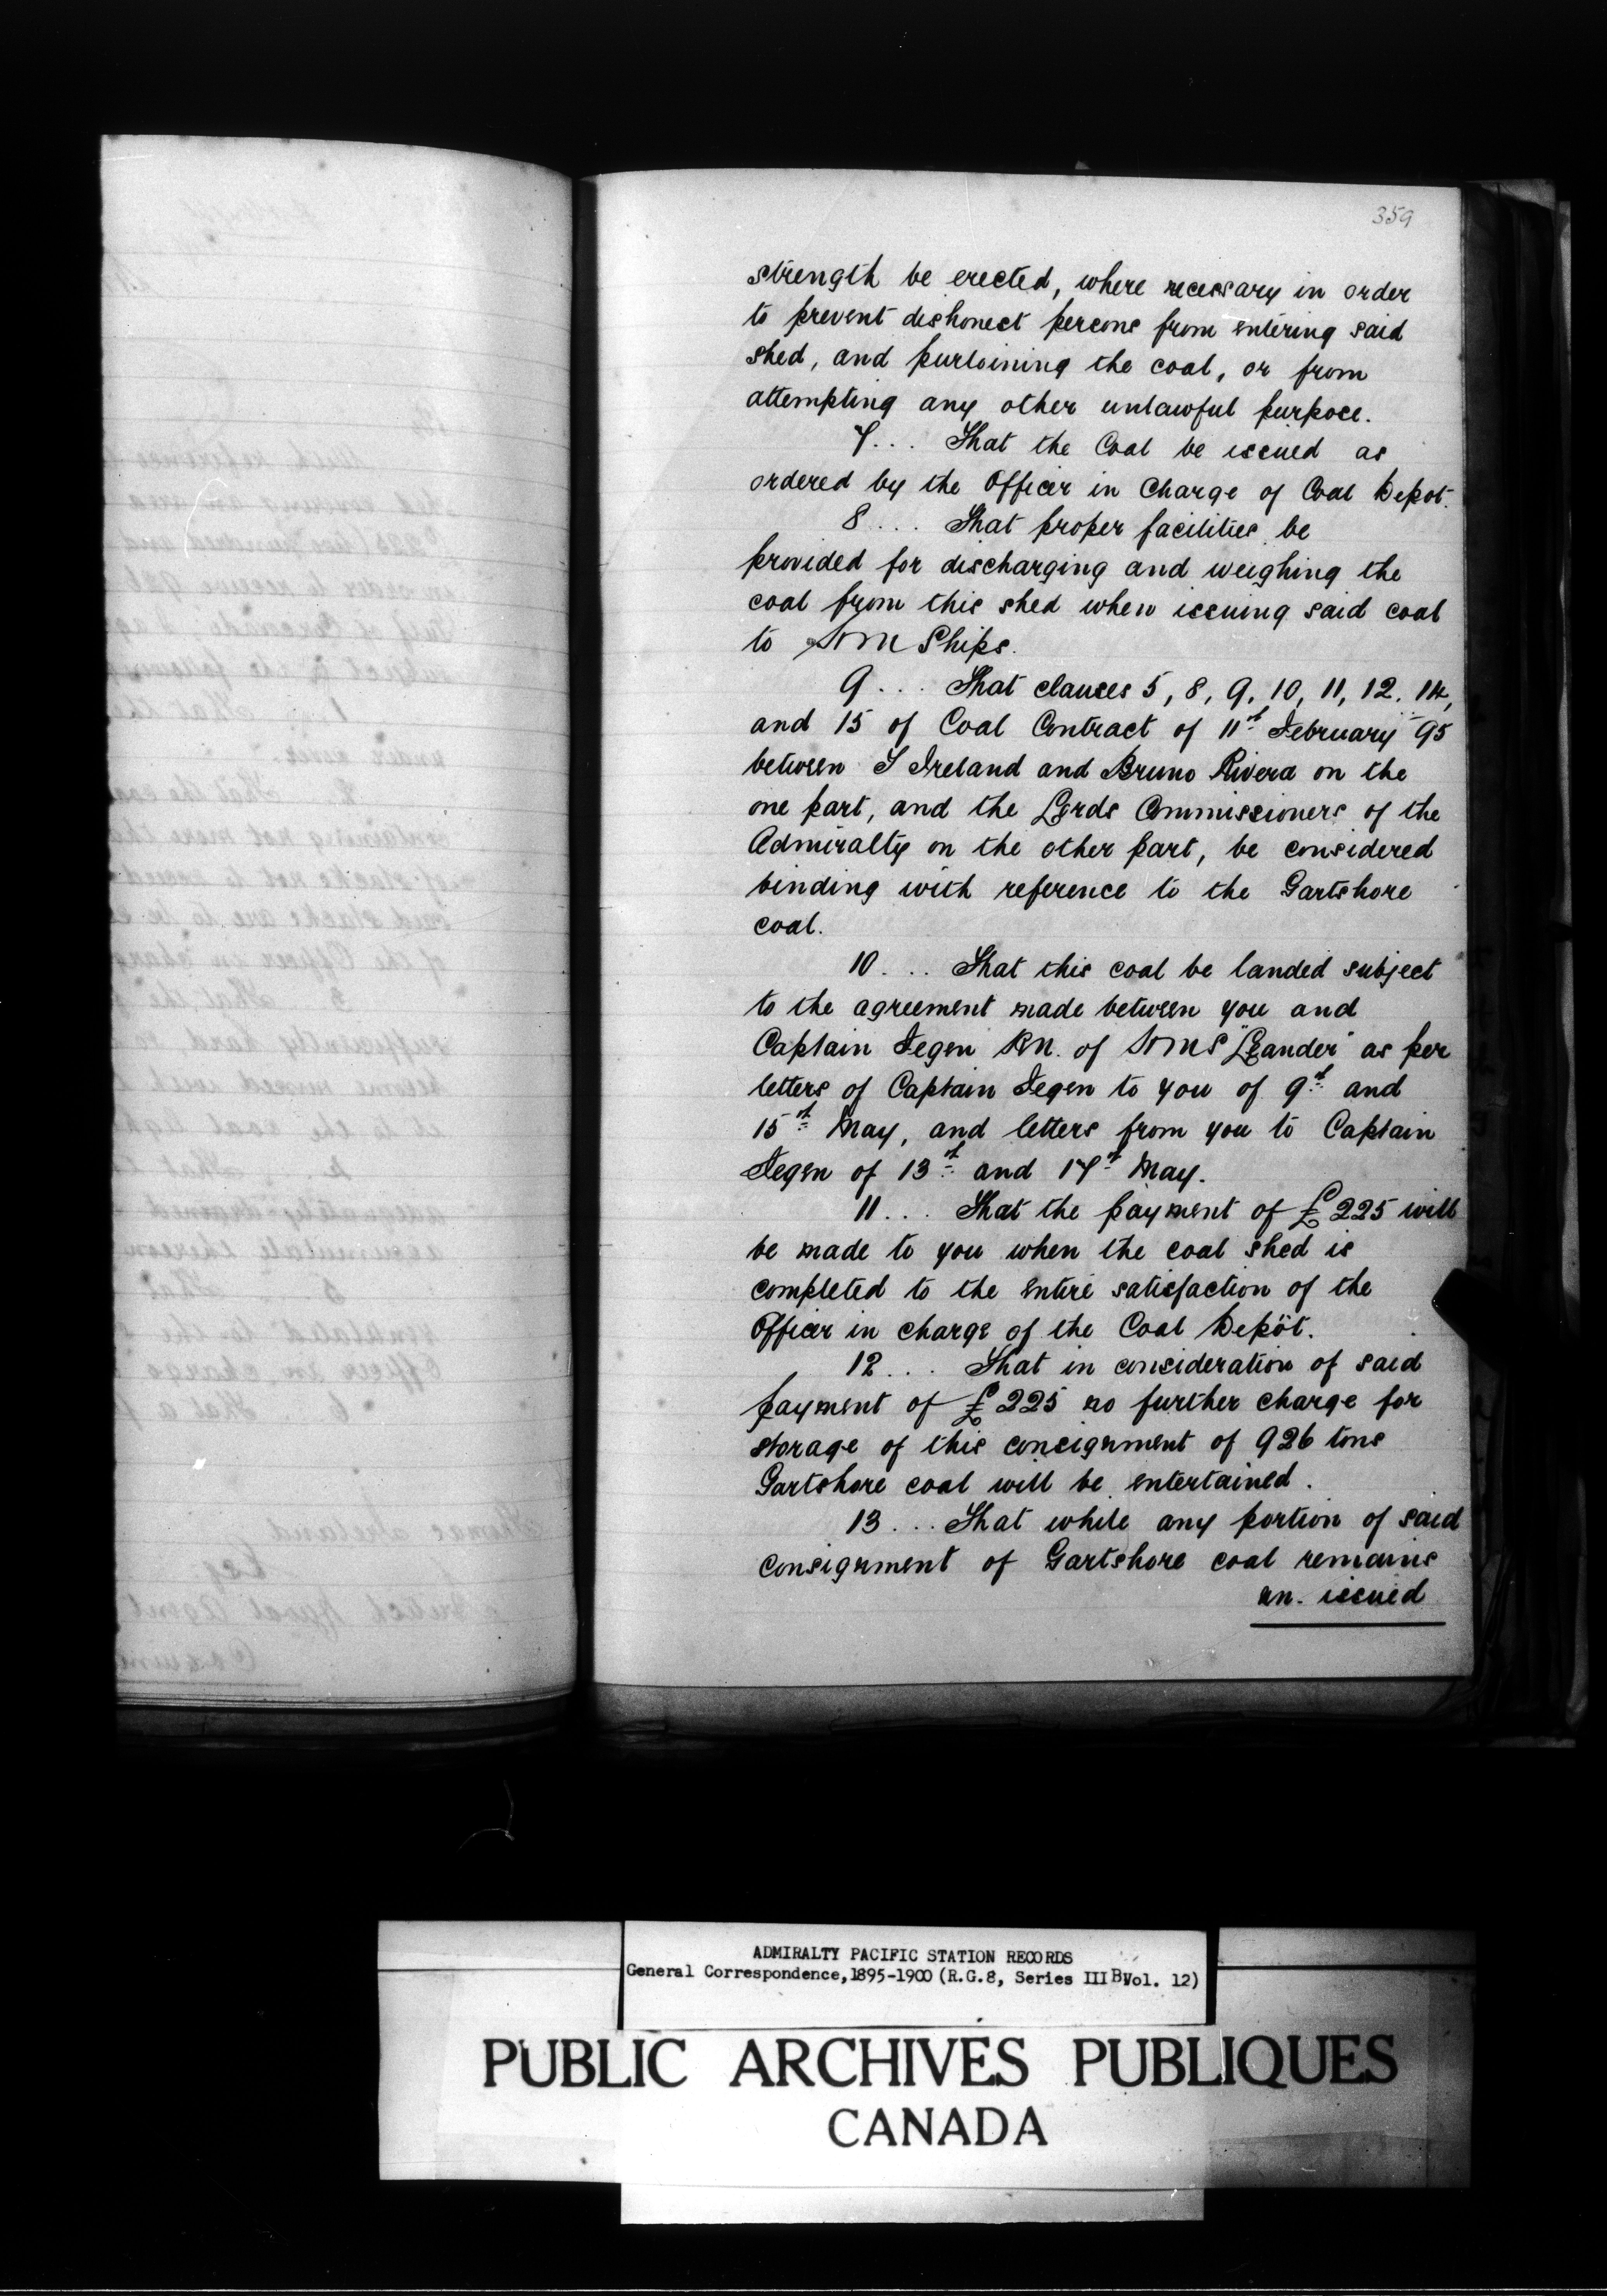 359
strength be erected, where necessary in order
to prevent dishonest persons from entering said
shed, and purloining the coal, or from
attempting any other unlawful purpose.
7... That the Coal be issued as
ordered by the Officer in Charge of Coal Depot.
8.... That proper facilities be
provided for discharging and weighing the
coal from this shed when issuing said coal
to HM Ships.
9... That clauses 5, 8, 9, 10, 11, 12. 14,
and 15 of Coal Contract of 11th February 95
between T Ireland and Bruno Rivera on the
one part, and the Lords Commissioners of the
Admiralty on the other part, be considered
binding with reference to the Gartshore
coal.
10... That this coal be landed subject
to the agreement made between you and
Captain Fegen RN. of HMS "Leander" as per
letters of Captain Fegen to you of 9th and
15th May, and letters from you to Captain
Fegen of 13th and 17th May.
11... That the payment of £225 will
be made to you when the coal shed is
completed to the entire satisfaction of the
Officer in charge of the Coal Depôt.
12... That in consideration of said
payment of £225 no further charge for
storage of this consignment of 926 tons
Gartshore coal will be entertained.
13... That while any portion of said
consignment of Gartshore coal remains
un. issued
ADMIRALTY PACIFIC STATION RECORDS
General Correspondence,1895-1900 (R.G.8, Series III B, Vol. 12)
PUBLIC ARCHIVES PUBLIQUES
CANADA